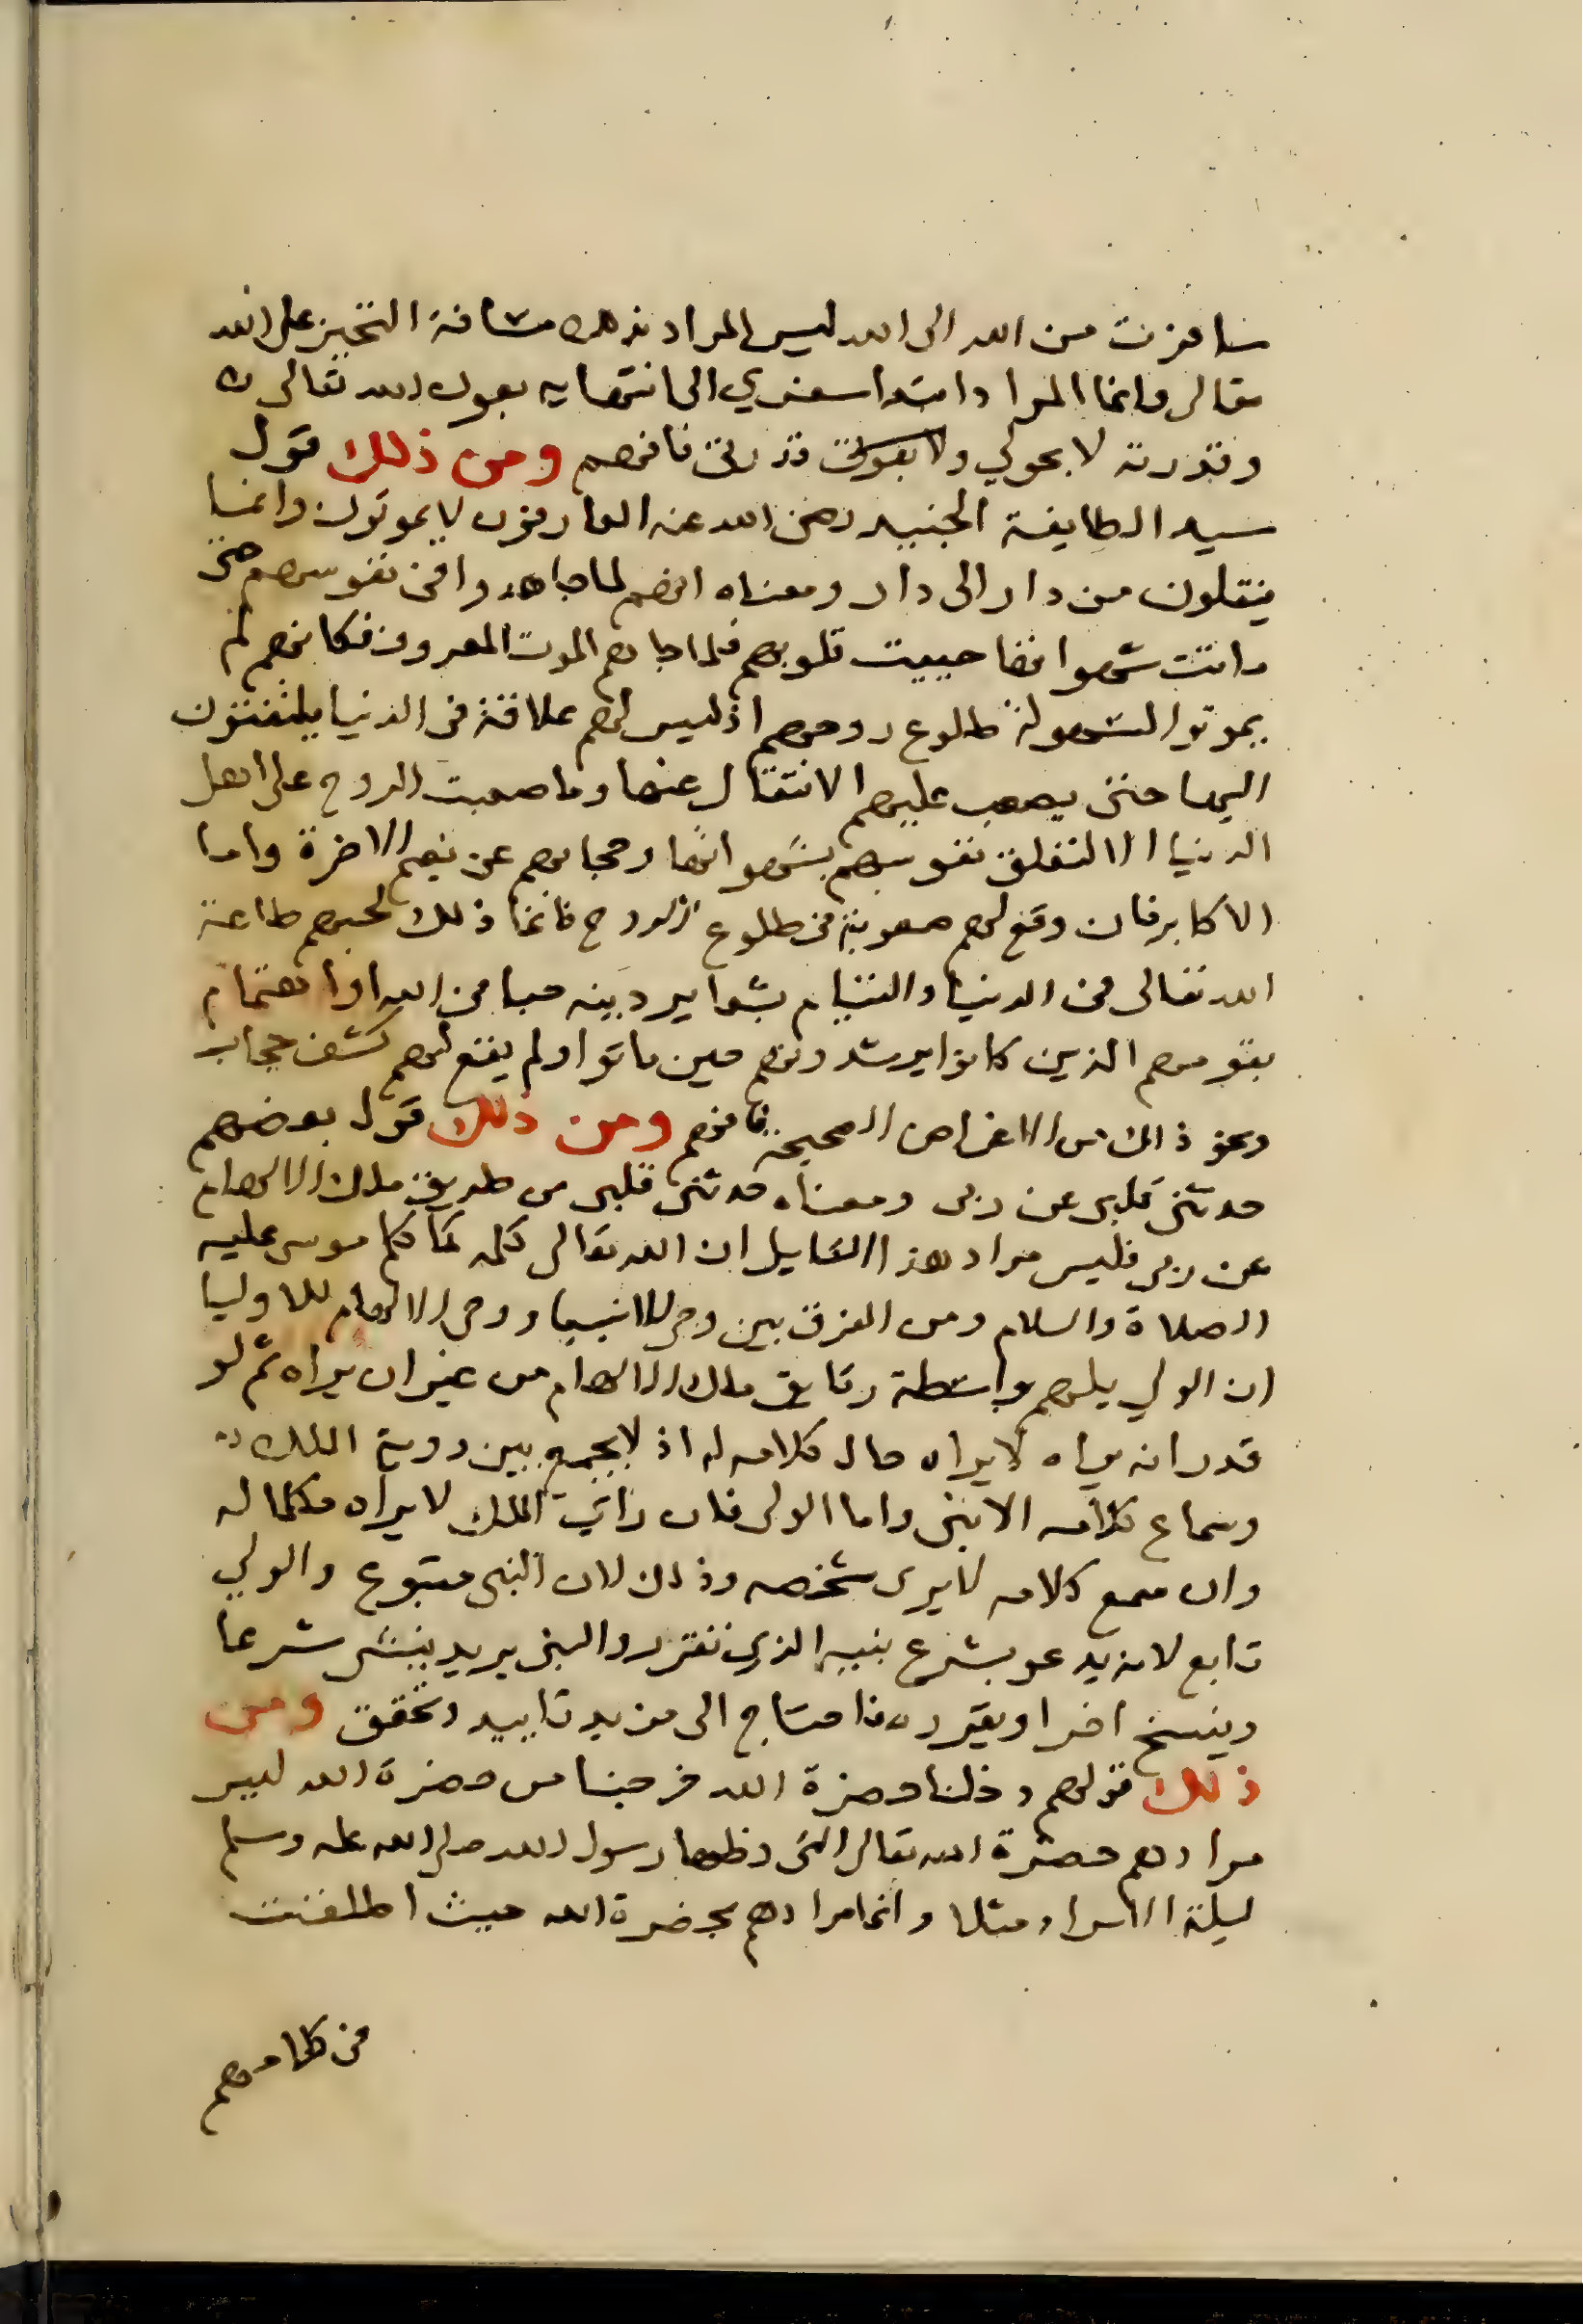 سافرت من الله الى الله ليس المراد بذلك مسافة التحيز على الله
تعالى وانما المراد ابتدا سفري الى انتهايه بعون الله تعالى
وقدرته لا بحولي ولا بقوتي قدرتي فافهم ومن ذلك قول
سيد الطايفة الجنيد رضي الله عنه العارفون لا يموتون وانما
ينقلون من دار الى دار ومعناه انهم لما جاهدوا في نفوسهم حتى
ماتت شهواتها حييت قلوبهم فلما جاهم الموت المعروف فكانهم لم
يموتوا لسهولة طلوع روحهم اذ ليس لهم علاقة في الدنيا يلتفتون
اليها حتى يصعب عليهم الانتقال عنها وما صعبت الروح على اهل
الدنيا الا لتعلق نفوسهم بشهواتها وحجابهم عن نعيم الاخرة واما
الاكابر فان وقع لهم صعوبة في طلوع الروح فانما ذلك لحبهم طاعة
الله تعالى في الدنيا والقيام بشعاير دينه حبا من الله او اهتمام
بقومهم الذين كانوا يرشدونهم حين ماتوا ولم يقع لهم كشف حجاب
ونحو ذلك من الاغراض الصحيحة فافهم ومن ذلك قول بعضهم
حدثني قلبي عن ربي ومعناه حدثني قلبي من طريق ملك الالهام
عن ربي فليس مراد هذا القايل ان الله تعالى كلمه كما كلم موسى عليه
الصلاة والسلام ومن الفرق بين وحي الانبيا ووحي الالهام للاوليا
ان الولي يلهم بواسطة رقايق ملك الالهام من غير ان يراه ثم لو
قدر انه يراه لا يراه حال كلامه له اذ لا يجمع بين روية الملك
وسماع كلامه الا نبي واما الولي فان راي الملك لا يراه مكلما له
وان سمع كلامه لا يرى شخصه وذلك لان النبي متبوع والولي
تابع لانه يدعو بشرع نبيه الذي تقرر والنبي يريد ينشى شرعا
وينسخ اخر او يقرره فاحتاج الى مزيد تاييد وتحقق ومن
ذلك قولهم دخلنا حضرة الله خرجنا من حضرة الله ليس
مرادهم حضرة الله تعالى التي دخلها رسول الله صلى الله عليه وسلم
ليلة الاسراء مثلا وانما مرادهم بحضرة الله حيث اطلقت
في كلامهم